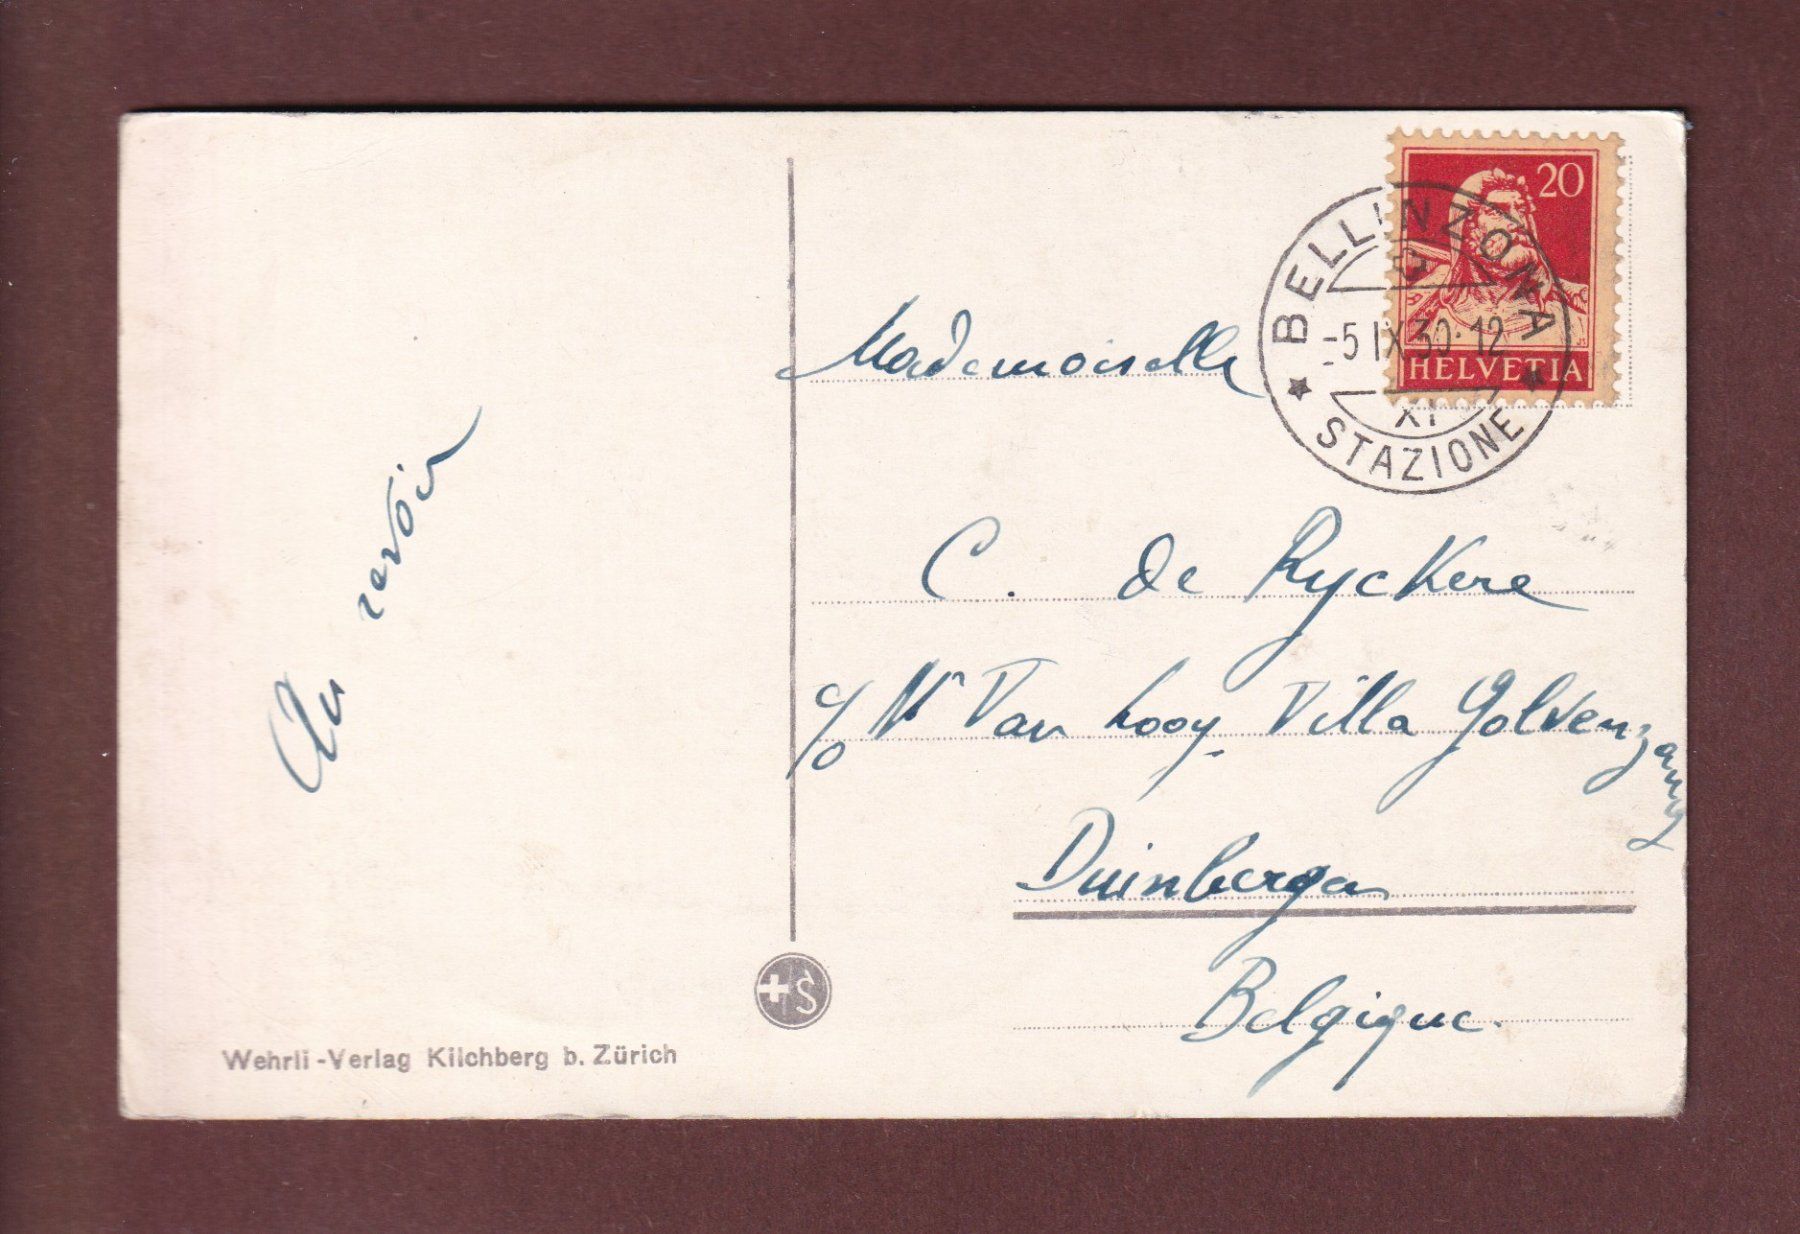 Au revoir
Wehrli-Verlag Kilchberg b. Zürich
+S
20
HELVETIA
BELLINZONA
-5 IX 30·12
XI
STAZIONE
Mademoiselle
C. de Ryckere
c/o Mr Van Looy. Villa Golvenzang
Duinbergen
Belgique.